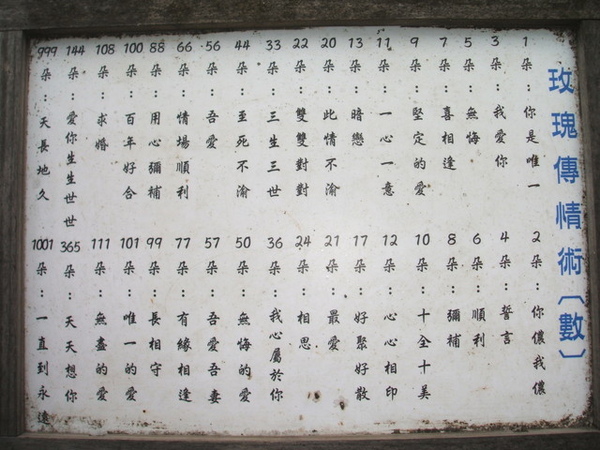 玫瑰傳情術〔數〕
1朵：你是唯一
3朵：我愛你
5朵：無悔
7朵：喜相逢
9朵：堅定的愛
11朵：一心一意
13朵：暗戀
20朵：此情不渝
22朵：雙雙對對
33朵：三生三世
44朵：至死不渝
56朵：吾愛
66朵：情場順利
88朵：用心彌補
100朵：百年好合
108朵：求婚
144朵：愛你生生世世
999朵：天長地久
2朵：你儂我儂
4朵：誓言
6朵：順利
8朵：彌補
10朵：十全十美
12朵：心心相印
17朵：好聚好散
21朵：最愛
24朵：相思
36朵：我心屬於你
50朵：無悔的愛
57朵：吾愛吾妻
77朵：有緣相逢
99朵：長相守
101朵：唯一的愛
111朵：無盡的愛
365朵：天天想你
1001朵：一直到永遠